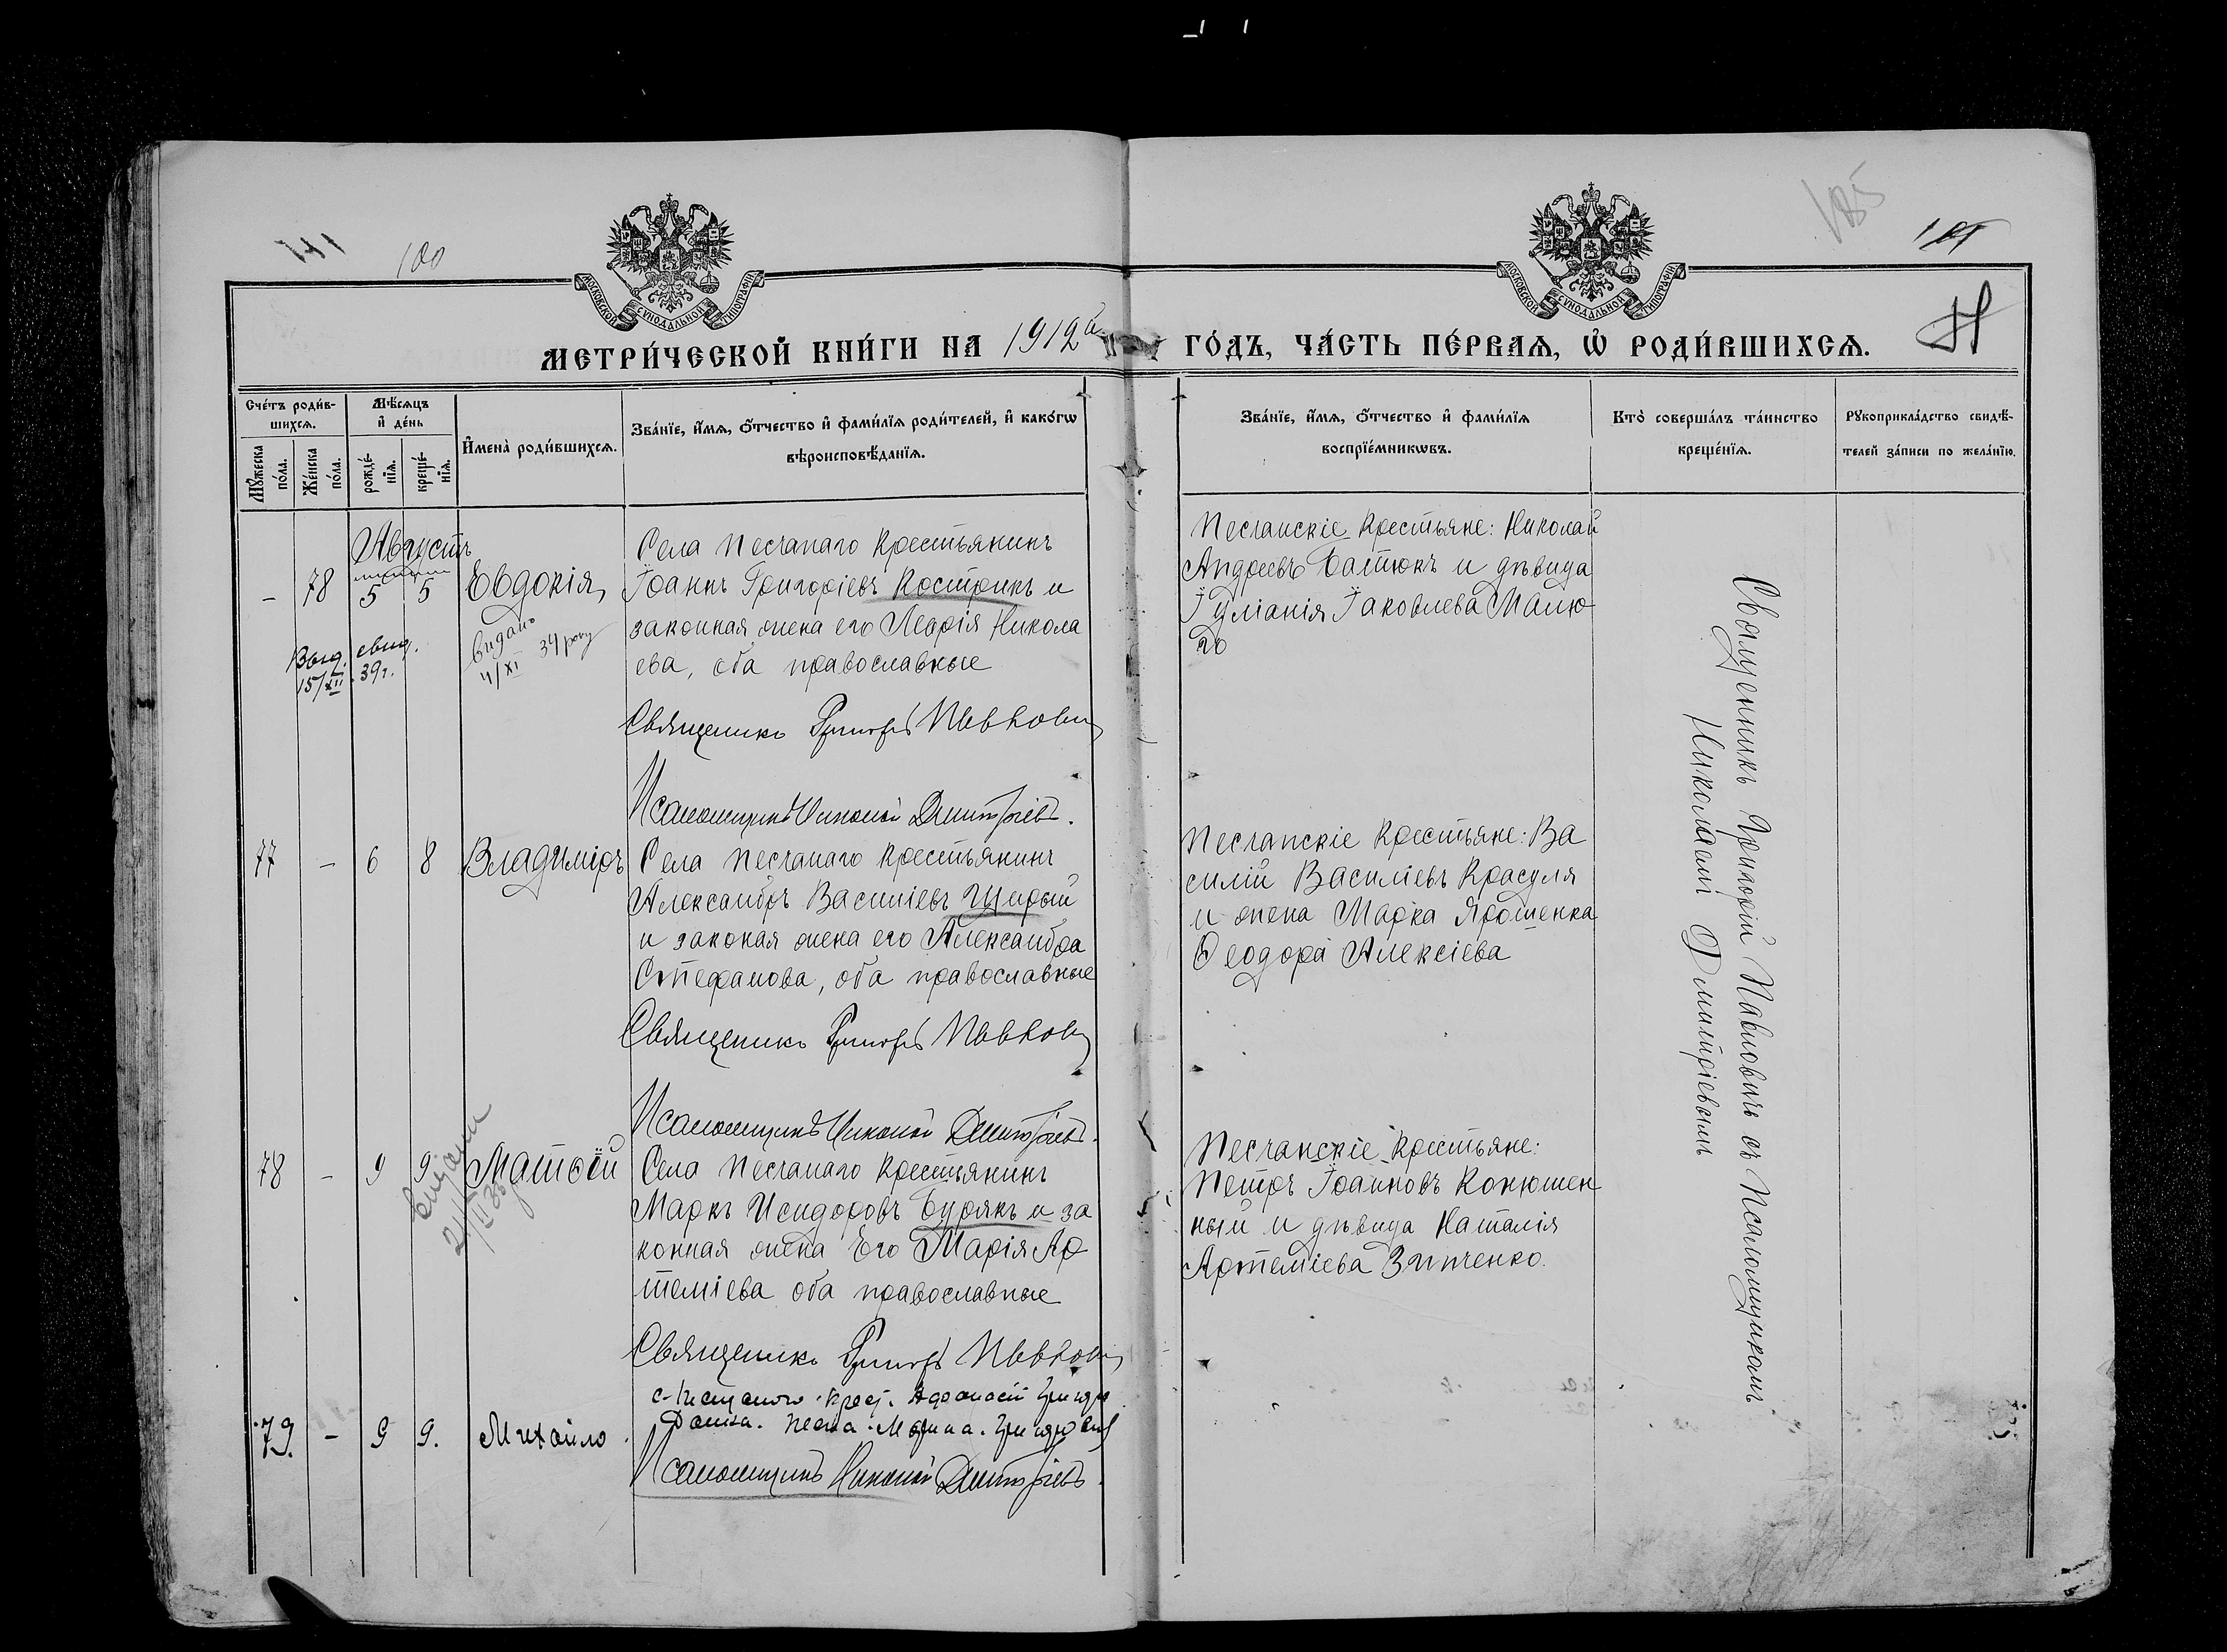 141
100
185
МОСКОВСКОЙ СѴНОДАЛЬНОЙ ТИПОГРАФІИ
МОСКОВСКОЙ СѴНОДАЛЬНОЙ ТИПОГРАФІИ
МЕТРИ́ЧЕСКОЙ КНИ́ГИ НА 1912й ГО́ДЪ, ЧА́СТЬ ПЕ́РВАѦ, Ѡ҆ РОДИ́ВШИХСѦ.
Сче́тъ роди́вшихсѧ.
Мꙋ́жеска по́ла.
Же́нска по́ла.
Мѣ́сѧцъ и҆ де́нь
рожде́нїѧ.
креще́нїѧ.
И҆мена̀ роди́вшихсѧ.
Зва́нїе, и҆́мѧ, ѻ҆́тчество и҆ фамѝлїѧ роди́телей, и҆ како́гѡ
вѣроисповѣ́данїѧ.
Зва́нїе, и҆́мѧ, ѻ҆́тчество и҆ фами́лїѧ
воспрїе́мникѡвъ.
Кто̀ соверша́лъ та́инство
креще́нїѧ.
Рꙋкоприкла́дство свидѣ́-
телей за́писи по жела́нїю.
Августъ
- 78 5 5 Евдокія
Выд. свид.
15/XII 39г.
видано
4/XI 34 року
Села Песчанаго крестьянинъ
Іоаннъ Григоріевъ Кострикъ и
законная жена его Марія Никола
ева, оба православные
Священикъ Григорій Павлович
Псаломщикъ Николай Дмитріевъ.
Песчанскіе крестьяне: Николай
Андреевъ Батюкъ и дѣвица
Іуліанія Іаковлева Малю
га
77 - 6 8 Владиміръ
Села Песчанаго крестьянинъ
Александръ Василіевъ Щирый
и законая жена его Александра
Стефанова, оба православные
Священикъ Григорій Павлович
Псаломщикъ Николай Дмитріевъ.
Песчанскіе крестьяне: Ва
силій Василіевъ Красуля
и жена Марка Ярошенка
Ѳеодора Алексіева
78 - 9 9 Матѳій
видани
Села Песчанаго крестьянинъ
Маркъ Исидоровъ Бурякъ и за
конная жена Его Марія Ар
теміева оба православные
Священикъ Григорій Павлович
Песчанскіе крестьяне:
Петръ Іоанновъ Конюшен
ный и дѣвица Наталія
Артеміева Зинченко.
79. - 9 9. Михайло
с. Песчаного. крест.
Псаломщикъ Николай Дмитріевъ.
Священникъ Григорій Павловичъ съ Псаломщикомъ
Николаемъ Дмитріевымъ